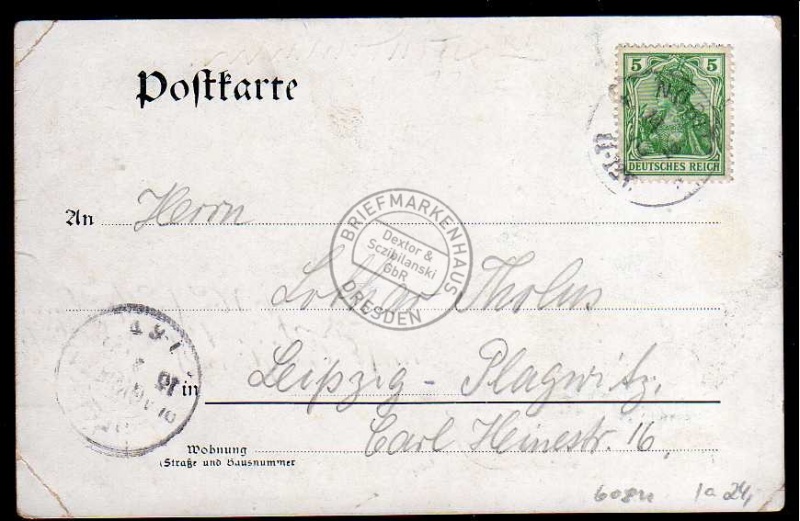 Postkarte
5 5
DEUTSCHES REICH
An Herrn
BRIEFMARKENHAUS
Dextor &
Sczibilanski
GbR
DRESDEN
Lothar Tholus
in Leipzig-Plagwitz,
Carl Heinestr. 16,
Wohnung
(Straße und Hausnummer
608u 1a 24,